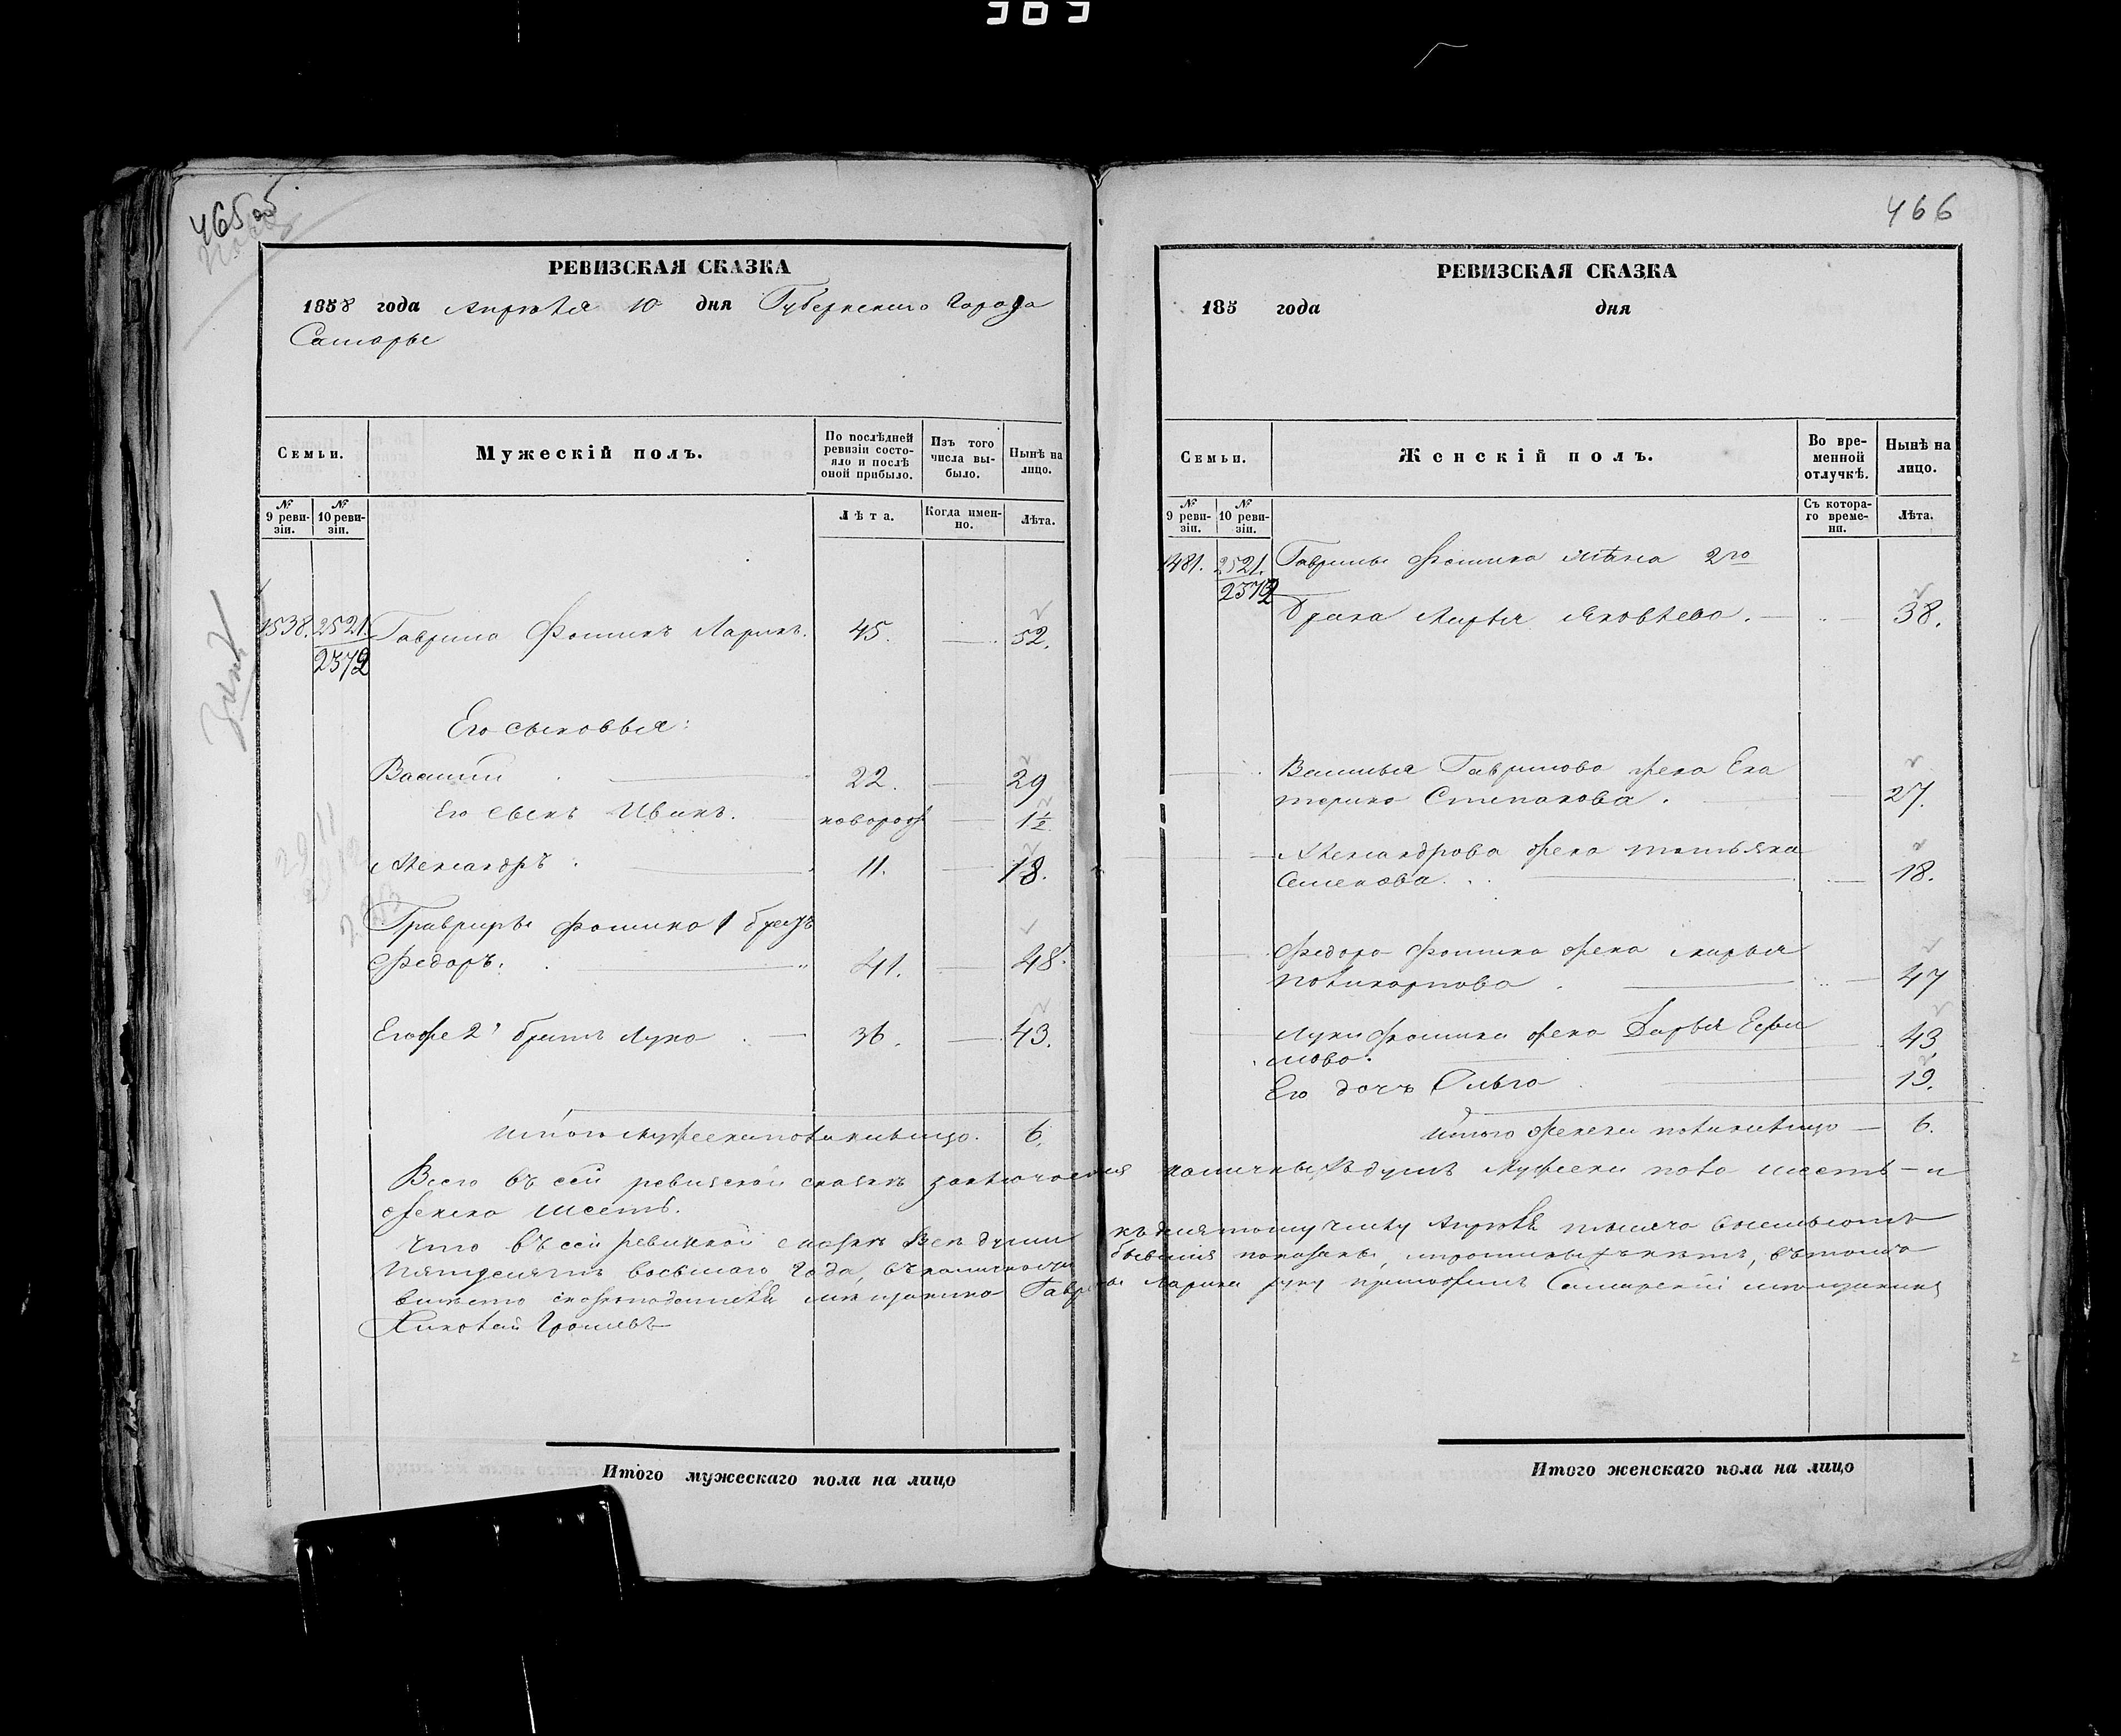 465 об
РЕВИЗСКАЯ СКАЗКА
1858 года Апрѣля 10 дня Губернскаго Города
Самары
Семьи.
Мужескій полъ.
По послѣдней ревизіи состояло и послѣ оной прибыло.
Изъ того числа выбыло.
Нынѣ на лицо.
№ 9 ревизіи.
№ 10 ревизіи.
Лѣта.
Когда именно.
Лѣта.
1538. 2521. Гаврила Фоминъ Ларинъ. 45. 52.
2372
Его сыновья:
Василий 22. 29
Его сынъ Иванъ. новорож 1 1/2
Александръ. 11. 18.
Гаврилы Фомина 1 братъ
Федоръ. 41. 48.
Егоже 2й братъ Лука 36. 43.
Итого мужеска пола налицо. 6.
Всего въ сей ревиской сказкѣ заключается наличныхъ душъ мужеска пола шесть и
женска шесть.
Что въ сей ревиской сказкѣ всѣ души къ десятому числу Апрѣля тысяча восемьсотъ
пятдесятъ восьмаго года, въ наличности бывшия показаны, и прописныхъ нѣтъ, въ томъ
вмѣсто сказкоподателя мѣщанина Гаврилы Ларина руку приложилъ Самарский мѣщанинъ
Итого мужескаго пола на лицо
466
РЕВИЗСКАЯ СКАЗКА
185 года дня
Семьи.
Женскій полъ.
Во временной отлучкѣ.
Нынѣ на лицо.
№ 9 ревизіи.
№ 10 ревизіи.
Съ котораго времени.
Лѣта.
1481. 2521. Гаврилы Фомина жѣна 2го
2372
брака Марья Яковлева. 38.
Василья Гаврилова жена Ека
терина Степанова. 27.
Александрова жена Татьяна
Семенова. 18.
Федора Фомина жена Марья
Поликарпова. 47
Луки Фомина жена Дарья Ефи
мова. 43
Его дочь Ольга 19.
Итого женска пола налицо 6.
Итого женскаго пола на лицо